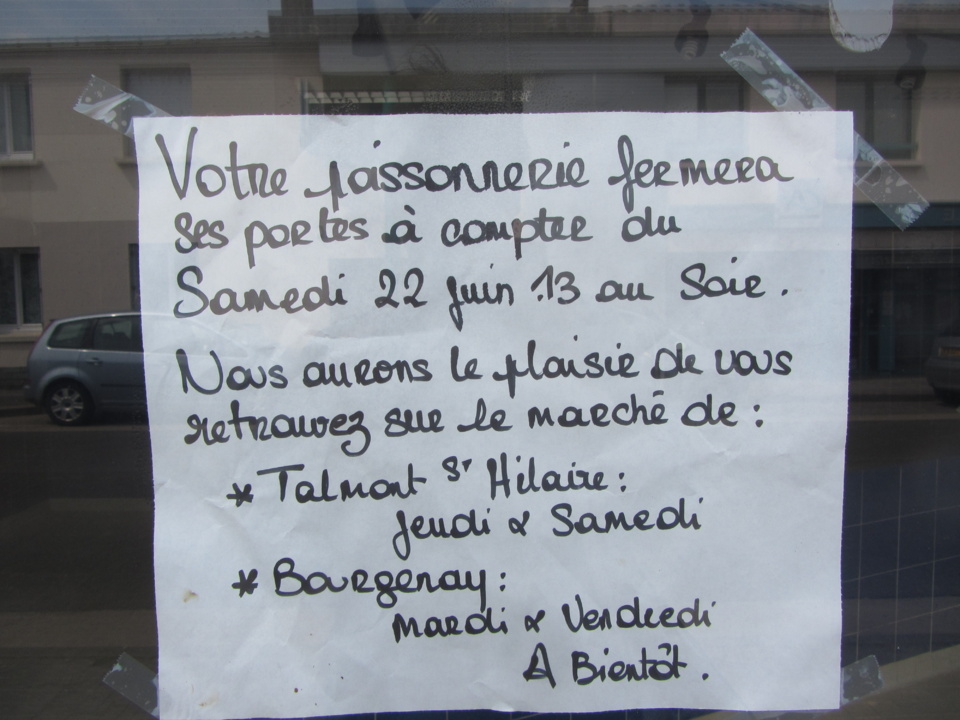 Votre poissonnerie fermera
ses portes à compter du
Samedi 22 juin 13 au Soir.
Nous aurons le plaisir de vous
retrouvez sur le marché de :
* Talmont St Hilaire :
Jeudi & Samedi
* Bourgenay :
Mardi & Vendredi
A Bientôt.